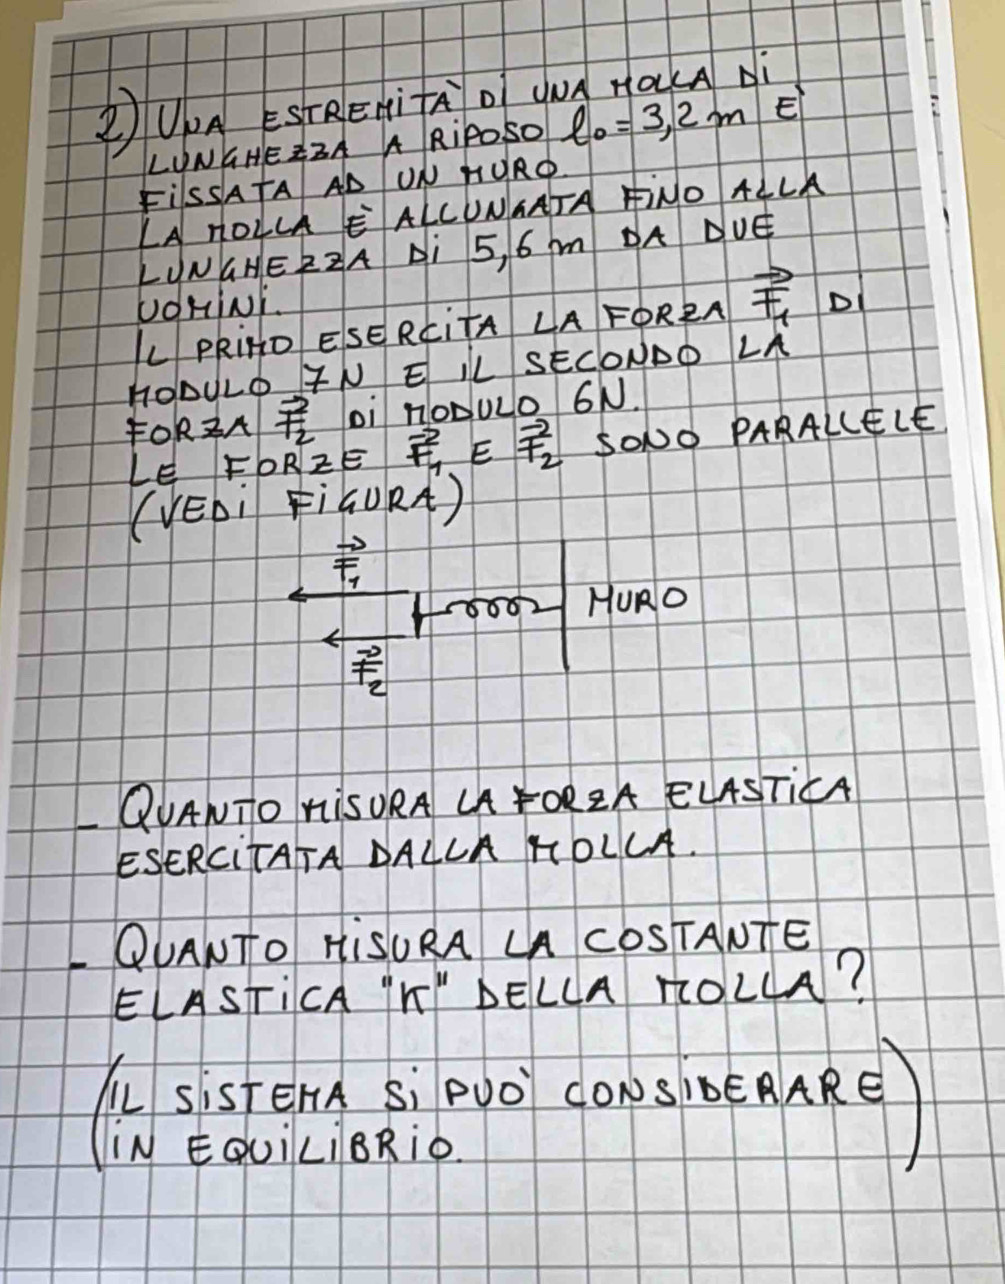 2) UNA ESTREMITÀ DI UNA MOLLA DI
LUNGHEZZA A RIPOSO l₀ = 3,2 m È
FISSATA AD UN MURO.
LA MOLLA È ALLUNGATA FINO ALLA
LUNGHEZZA DI 5,6 m DA DUE
UOMINI.
IL PRIMO ESERCITA LA FORZA F⃗₁ DI
MODULO 7N E IL SECONDO LA
FORZA F⃗₂ DI MODULO 6N.
LE FORZE F⃗₁ E F⃗₂ SONO PARALLELE.
(VEDI FIGURA)
F⃗₁
MURO
F⃗₂
- QUANTO MISURA LA FORZA ELASTICA
ESERCITATA DALLA MOLLA.
- QUANTO MISURA LA COSTANTE
ELASTICA "K" DELLA MOLLA?
(IL SISTEMA SI PUÒ CONSIDERARE
IN EQUILIBRIO.)